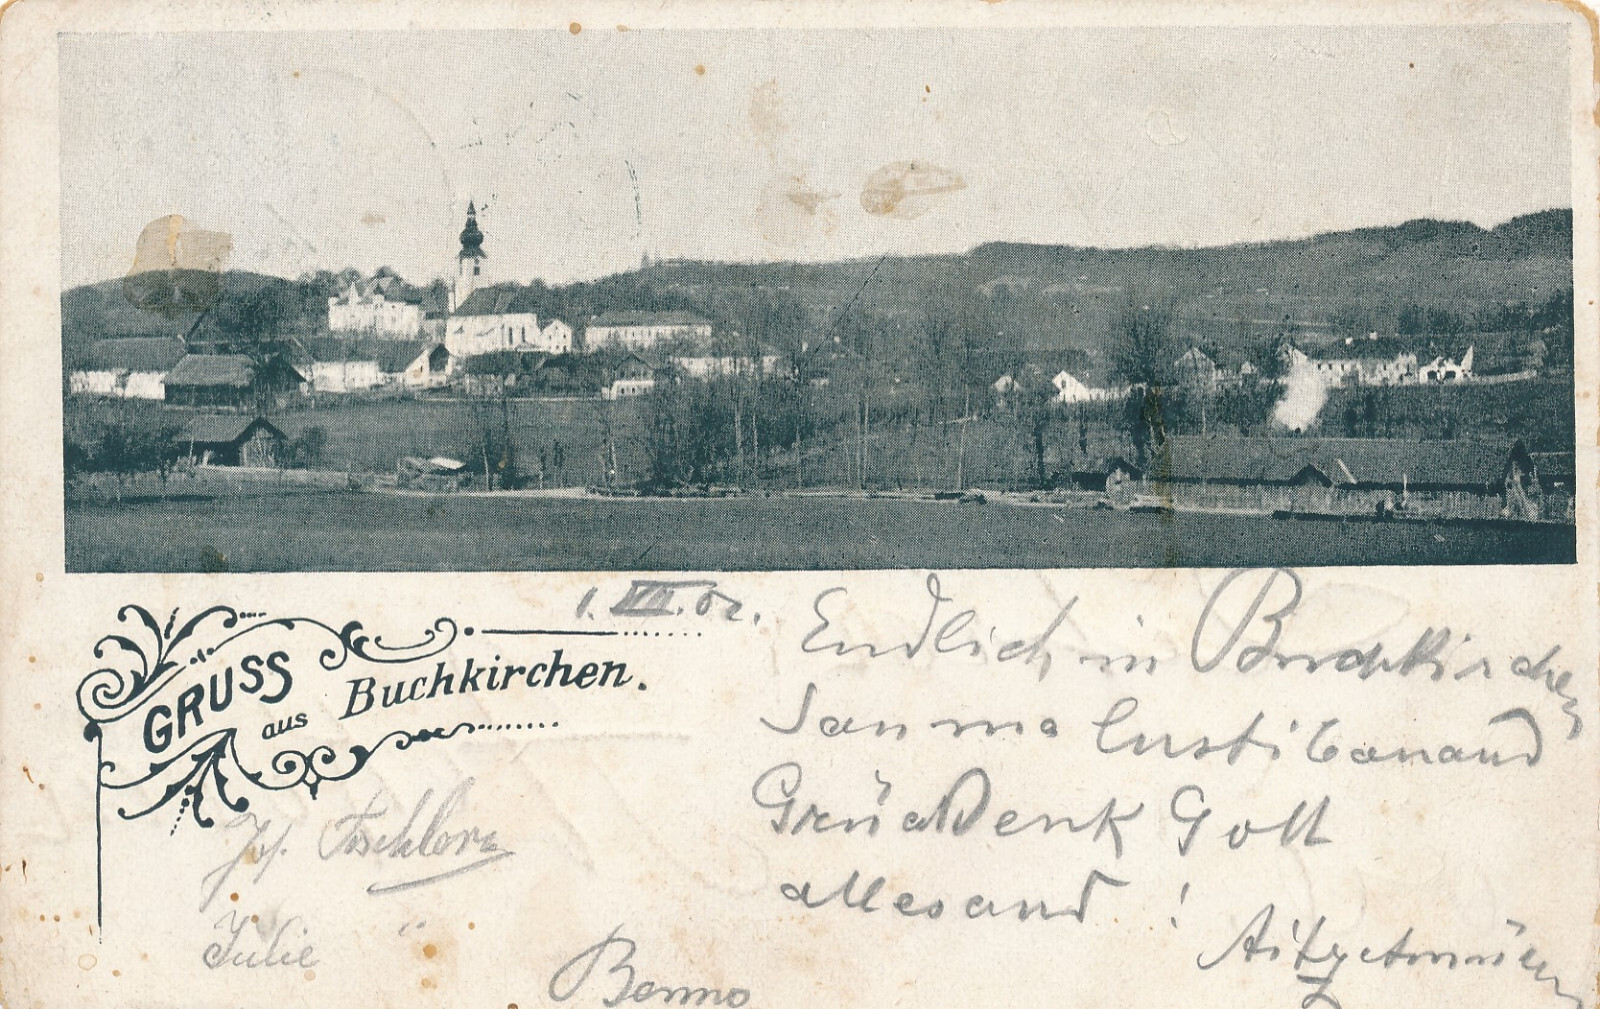 1. VII. 02.
GRUSS
aus Buchkirchen.
Endlich in Buchkirchen
San ma lusti banand
Grüaß Denk Gott
allesand !
Aitzetmüller
Jos. Tischler
Julie "
Benno